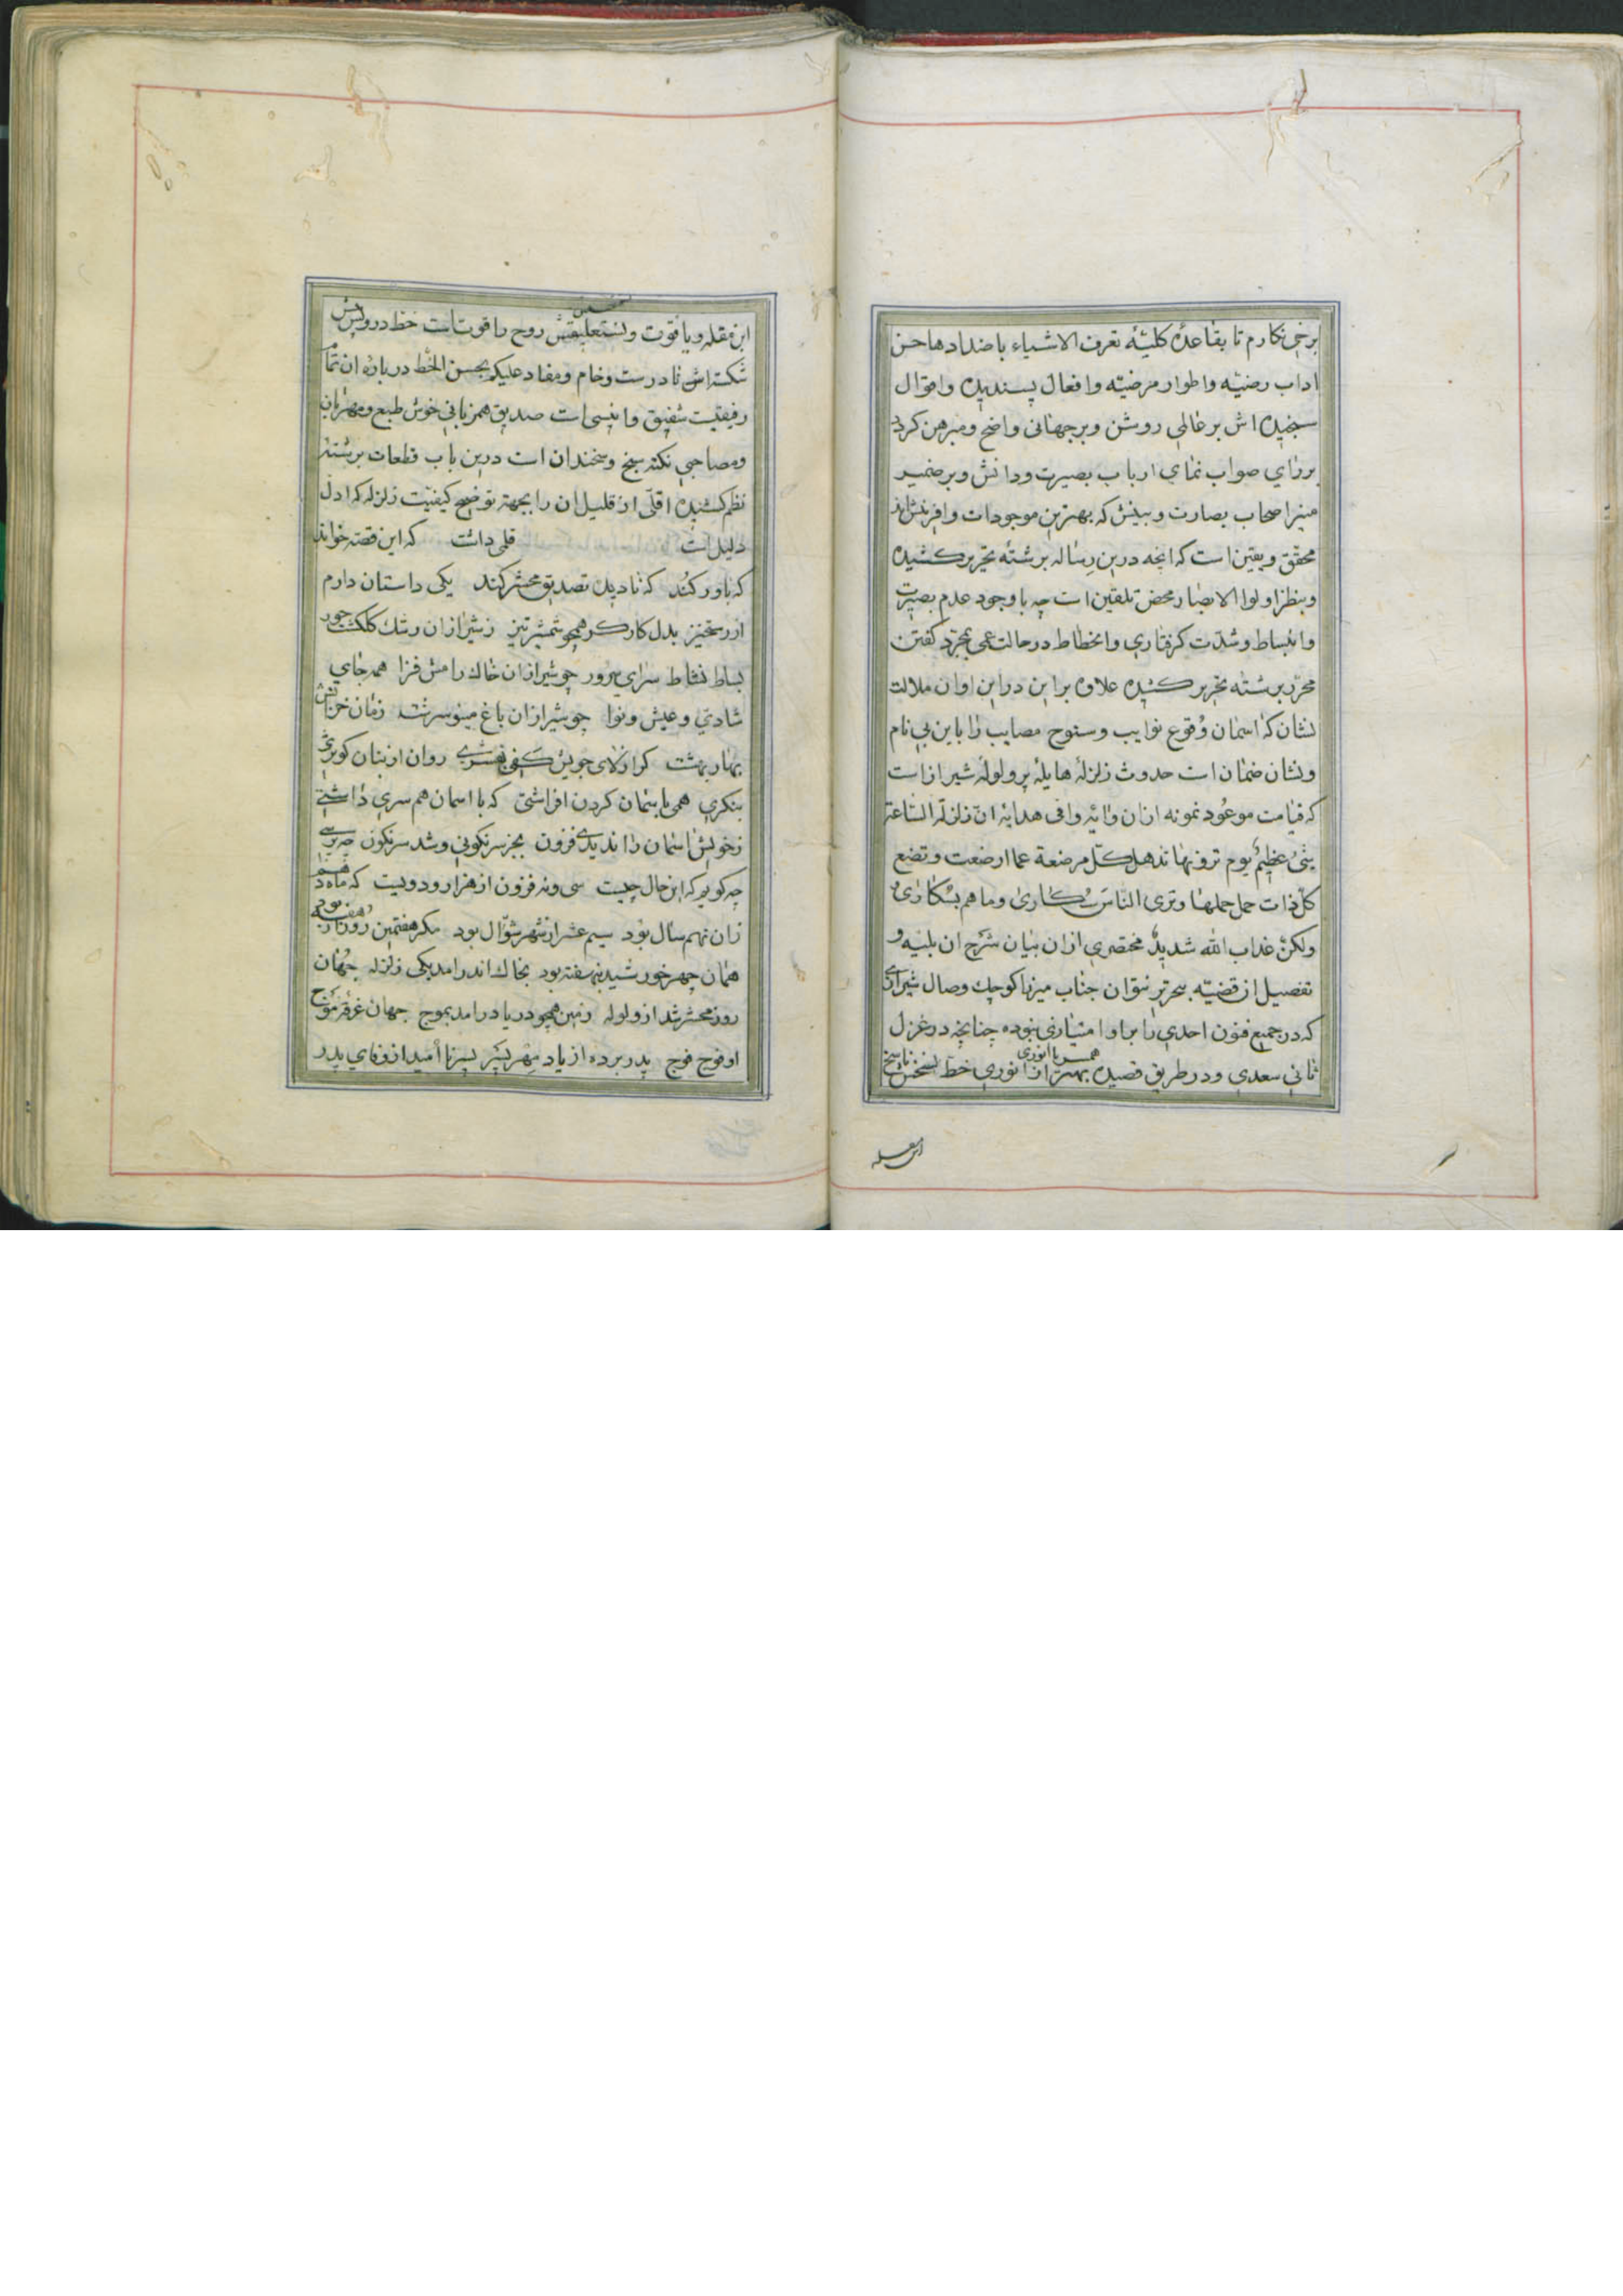 برخی نکارم تا بقاعدهٔ کلیّهٔ تعرف الاشیاء باضدادها حسن
اداب رضیّه و اطوار مرضیّه و افعال پسندیده و اقوال
سنجیده اش بر عالمی روشن و بر جهانی واضح و مبرهن کردد
بررای صواب نمای ارباب بصیرت و دانش و بر ضمیر
منیر اصحاب بصارت و بینش که بهترین موجودات و افرینش اند
محقّق و یقین است که انچه درین رساله برشتهٔ تحریر کشیده
و بنظر اولوا الابصار محض تلقین است چه با وجود عدم بصیرت
و انبساط و شدّت کرفتاری و انحطاط در حالت عمی بمجرّد کفتن
محرّر برشته تحریر کشیده علاوه بر این در این اوان ملالت
نشان که اسمان وقوع نوایب و سنوح مصایب را باین بی نام
و نشان ضمان است حدوث زلزلهٔ هایلهٔ پر ولولهٔ شیراز است
که قیامت موعود نمونه ازان و ایهٔ وافی هدایهٔ انّ زلزلة السّاعة
شیءٌ عظیمٌ یوم ترونها تذهل کلّ مرضعة عما ارضعت و تضع
کلّ ذات حمل حملها و تری النّاس سُکاریٰ و ما هم بسُکاریٰ
و لکنّ عذاب الله شدیدٌ مختصری ازان بیان شرح ان بلیه و
تفصیل ان قضیّه بیحر تر نتوان جناب میرزا کوچك وصال شیرازی
که در جمیع فنون احدی را بر او امتیازی نبوده چنانچه در غزل
همسر با انوری
ثانی سعدی و در طریق قصیده بهتر از انوری خطّ نسخش ناسخ
ابن مقله
ابن مقله و یاقوت و نستعلیقش روح را قوت است خط درویش
شکسته اش نادرست و خام و مفاد علیکم بحسن الخطّ درباره ان تمام
رفیقیست شفیق و انیسی است صدیق همزبانی خوش طبع و مهربان
و مصاحبی نکته سنج و سخندان است درین باب قطعات برشته
نظم کشیده اقلّی از قلیل ان را بجهته توضیح کیفیّت زلزله که ادلّ
دلیل است قلی داشت که این قصّه خواند
که باور کند که نادیده تصدیق محشر کند یکی داستان دارم
از رستخیز بدل کارکر همچو شمشیر تیز ز شیراز ان رشك کلکشت حور
بساط نشاط سرای سرور چو شیراز ان خاك رامش فزا همه جای
شادی و عیش و نوا چو شیراز ان باغ مینو سرشت زمان خزانش
بهار بهشت کر از لای جویش کفی بفشری روان از بنان کوثرش
بنکری همی باسمان کردن افراشتی که با اسمان هم سری داشتی
ز خویش اسمان را ندیدی فزون بجز سرنکونی و شد سرنکون چه پرسی
چه کویم که این حال چیست سی و نه فزون از هزار و دویست که ماه دهم
زان نهم سال بود سیم عشر از شهر شوّال بود مکر هفتمین روز از هفته بود
همان چهر خورشید بنهفته بود بخاك اندر امد یکی زلزله جهان
روز محشر شد از ولوله زمین همچو دریا درامد بموج جهان غرقه موج
او فوج فوج پدر برده از یاد مهر پسر پسر نا امید از وفای پدر